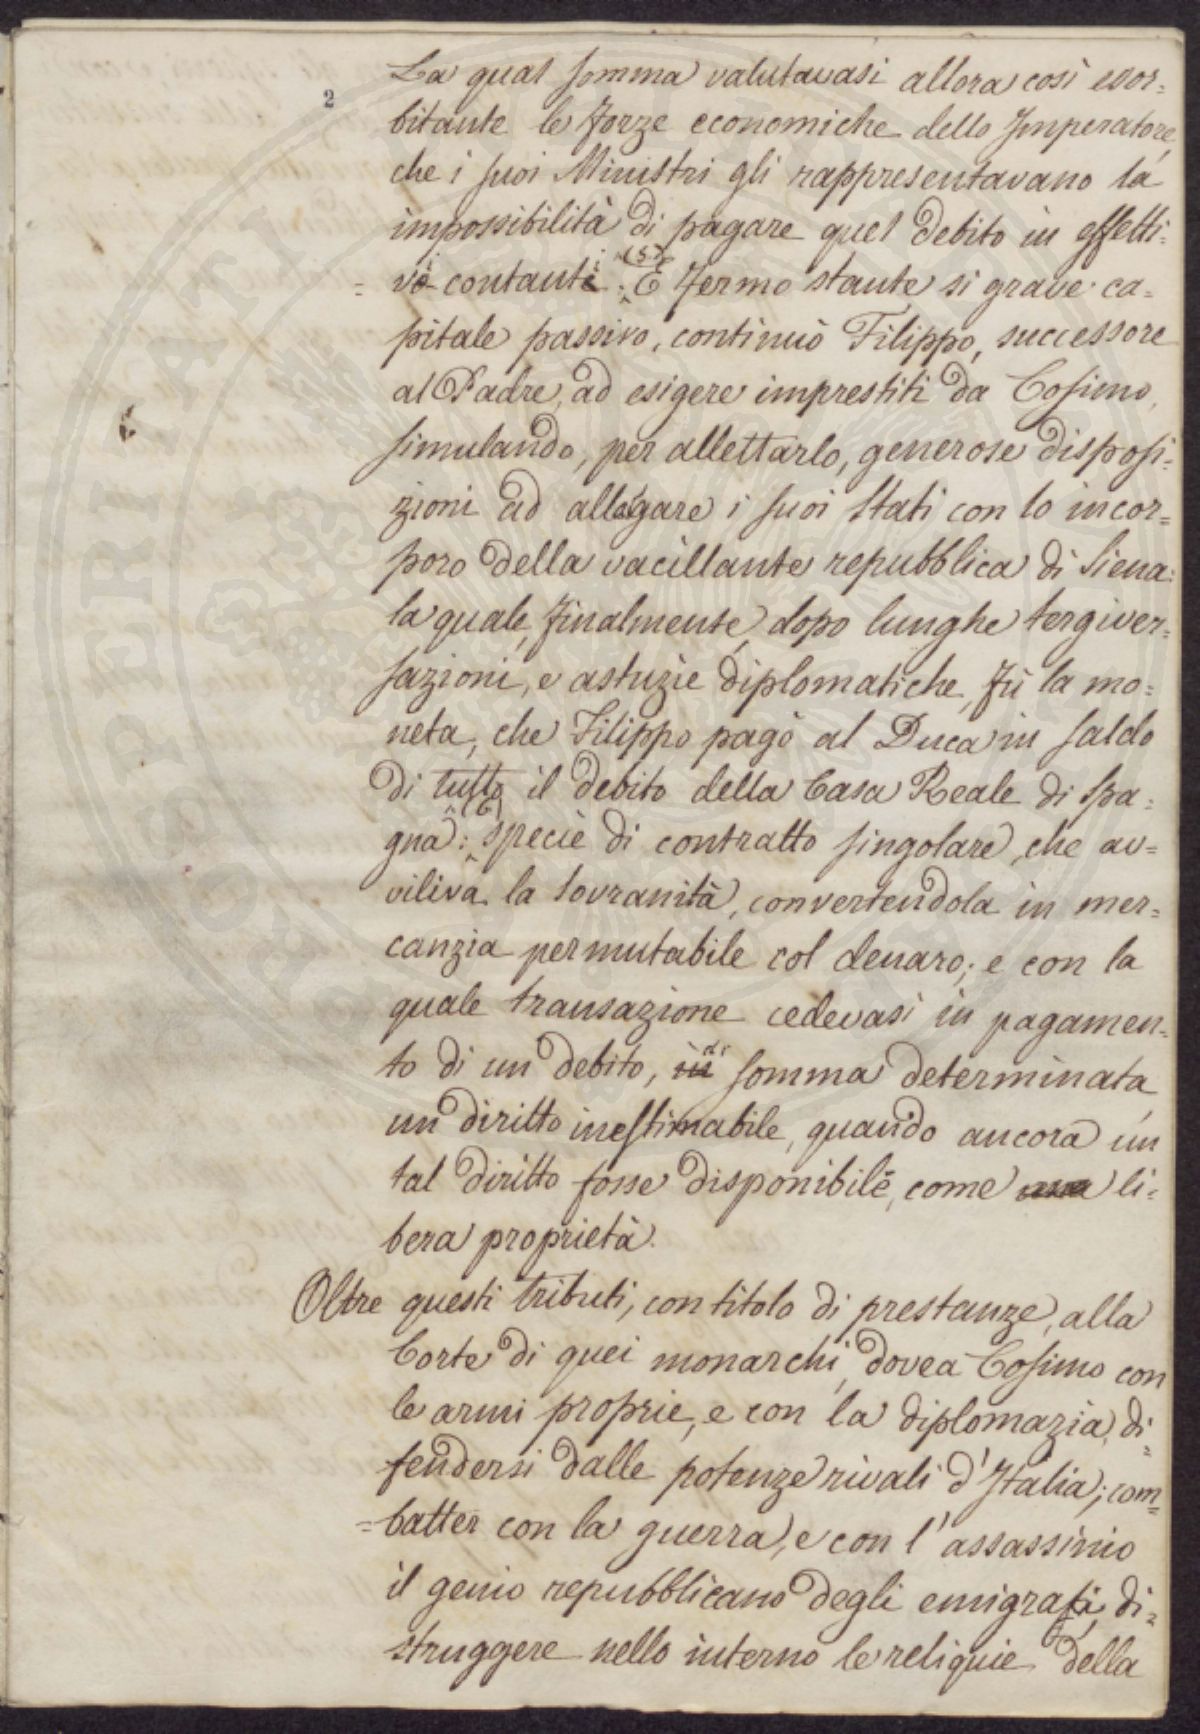 2
La qual somma valutavasi allora così esor=
bitante le forze economiche dello Imperatore,
che i suoi Ministri gli rappresentavano la
impossibilità di pagare quel debito in effetti=
= vo contanti. (5) E fermo stante si grave ca=
pitale passivo, continuò Filippo, successore
al Padre, ad esigere imprestiti da Cosimo,
simulando, per allettarlo, generose disposi=
zioni ad allagare i suoi stati con lo incor=
poro della vacillante repubblica di Siena:
la quale, finalmente, dopo lunghe tergiver=
sazioni, e astuzie diplomatiche, fù la mo=
neta, che Filippo pagò al Duca in saldo
di tutto il debito della Casa Reale di Spa=
gna: (6) specie di contratto singolare, che av=
viliva la sovranità, convertendola in mer=
canzia permutabile col denaro; e con la
quale transazione cedevasi in pagamen=
to di un debito, in di somma determinata
un diritto inestimabile, quando ancora un
tal diritto fosse disponibile, come li=
bera proprietà.
Oltre questi tributi, con titolo di prestanze, alla
Corte di quei monarchi, dovea Cosimo con
le armi proprie, e con la diplomazia, di=
fendersi dalle potenze rivali d'Italia; com=
= batter con la guerra, e con l'assassinio
il genio repubblicano degli emigrati, di=
struggere nello interno le reliquie della